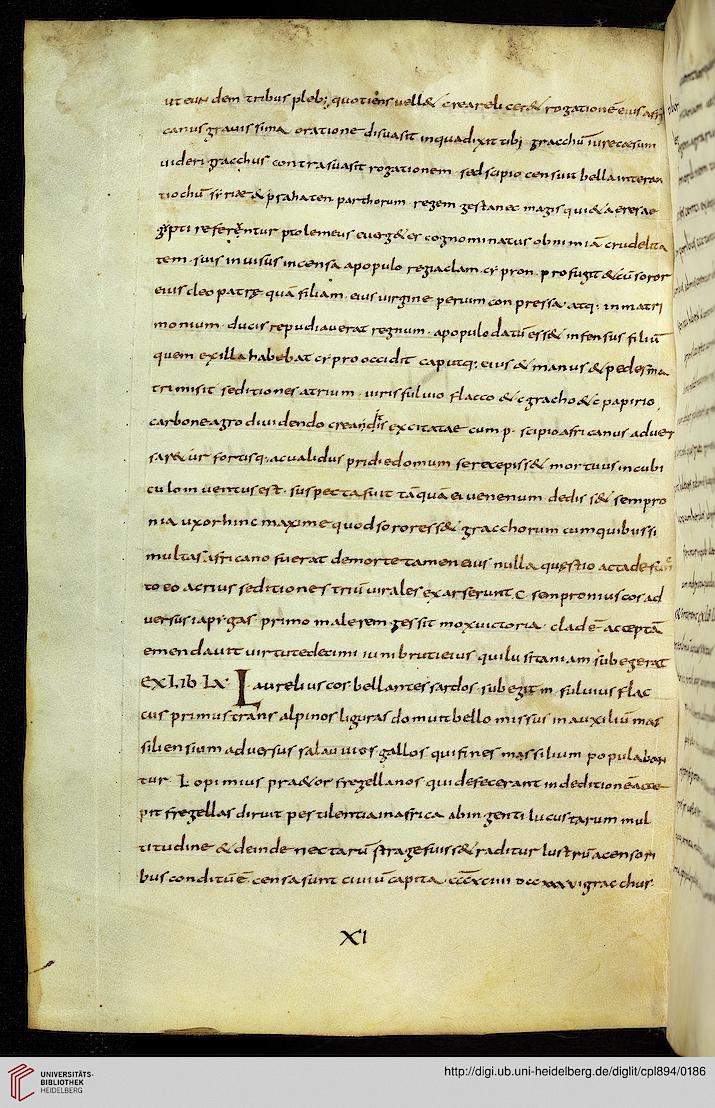 ut eundem tribus plebi quotiens uell& creareli cer& rogationē eius afri
canus grauissima oratione disuasit inquadixit tibi gracchū iurecaesum
uideri gracchus contrasuasit rogationem sedscipio censuit bellainteran
tiochū syriae & prahaten parthorum regem gestanec magis qui&aeresae
gypti referentur ptolemeus euerg&es cognominatus obnimiā crudelita
tem suis inuisus incensa apopulo regiaclam cypron profugit &cūsoror
eius cleopatre quā filiam eius uirgine perum conpressa atq: inmatri
monium ducis repudiauerat regnum apopulodatū ess& infensus filiū
quem exillahabebat cypro occidit caputq: eius &manus &pedesma
trimisit seditiones atrium uirisfuluio flacco &cgracho&c papirio
carbone agro diuidendo creandis excitatae cum p scipioafricanus aduer
sar&ur fortisq: acualidus pridiedomum serecepiss& mortuus incubi
culo inuentus est suspectafuit tāquā ei uenenum dediss& sempro
nia uxorhinc maxime quodsororess& gracchorum cumquibussi
multas africano fuerat demorte tameneius nulla questio acta
to eo acrius seditiones triūuirales exarserunt c sempronius cos ad
uersus iapygas primo malerem gessit moxuictoria cladē acceptā
emendauit uirtutedecimi iunibrutieius quilusitaniam subegerat
exLib Lx Laurelius cos bellantes sardos subegit m fuluius flac
cus primus trans alpinos liguras domuit bello missus in auxiliū mas
siliensium aduersus saluuios gallos quifines massilium populaban
tur L opimius pra&or fregellanos qui defecerant indeditionē acce
pit fregellas diruit pestilentia inafrica abingenti lucustarum mul
titudine &deinde nectarū stragefuiss& traditur lustrū acensori
bus conditū ē censasunt ciuiū capita cccxciiii dccxxxvi gracchus
XI
UNIVERSITÄTS-
BIBLIOTHEK
HEIDELBERG
http://digi.ub.uni-heidelberg.de/diglit/cpl894/0186